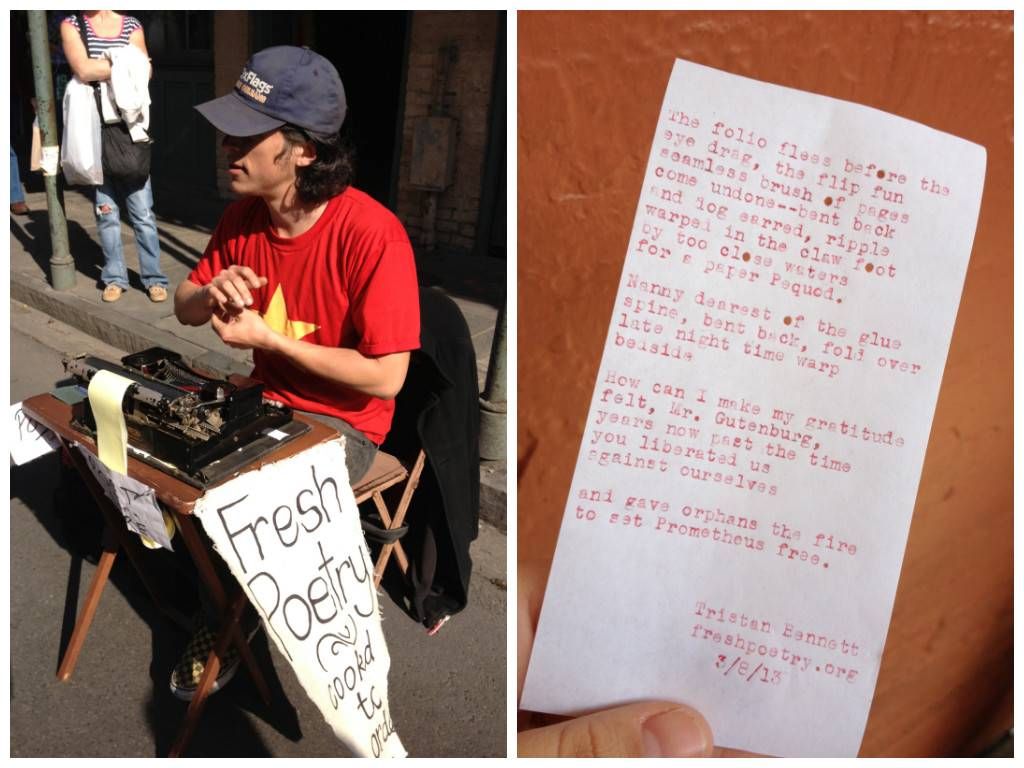 Flags
Fresh
Poetry
cookd
to
orde
The folio flees before the
eye drag, the flip fun
seamless brush of pages
come undone--bent back
and dog earred, ripple
warped in the claw foot
by too close waters
for a paper Pequod.
Nanny dearest of the glue
spine, bent back, fold over
late night time warp
bedside
How can I make my gratitude
felt, Mr. Gutenburg,
years now past the time
you liberated us
against ourselves
and gave orphans the fire
to set Prometheus free.
Tristan Bennett
freshpoetry.org
3/8/13